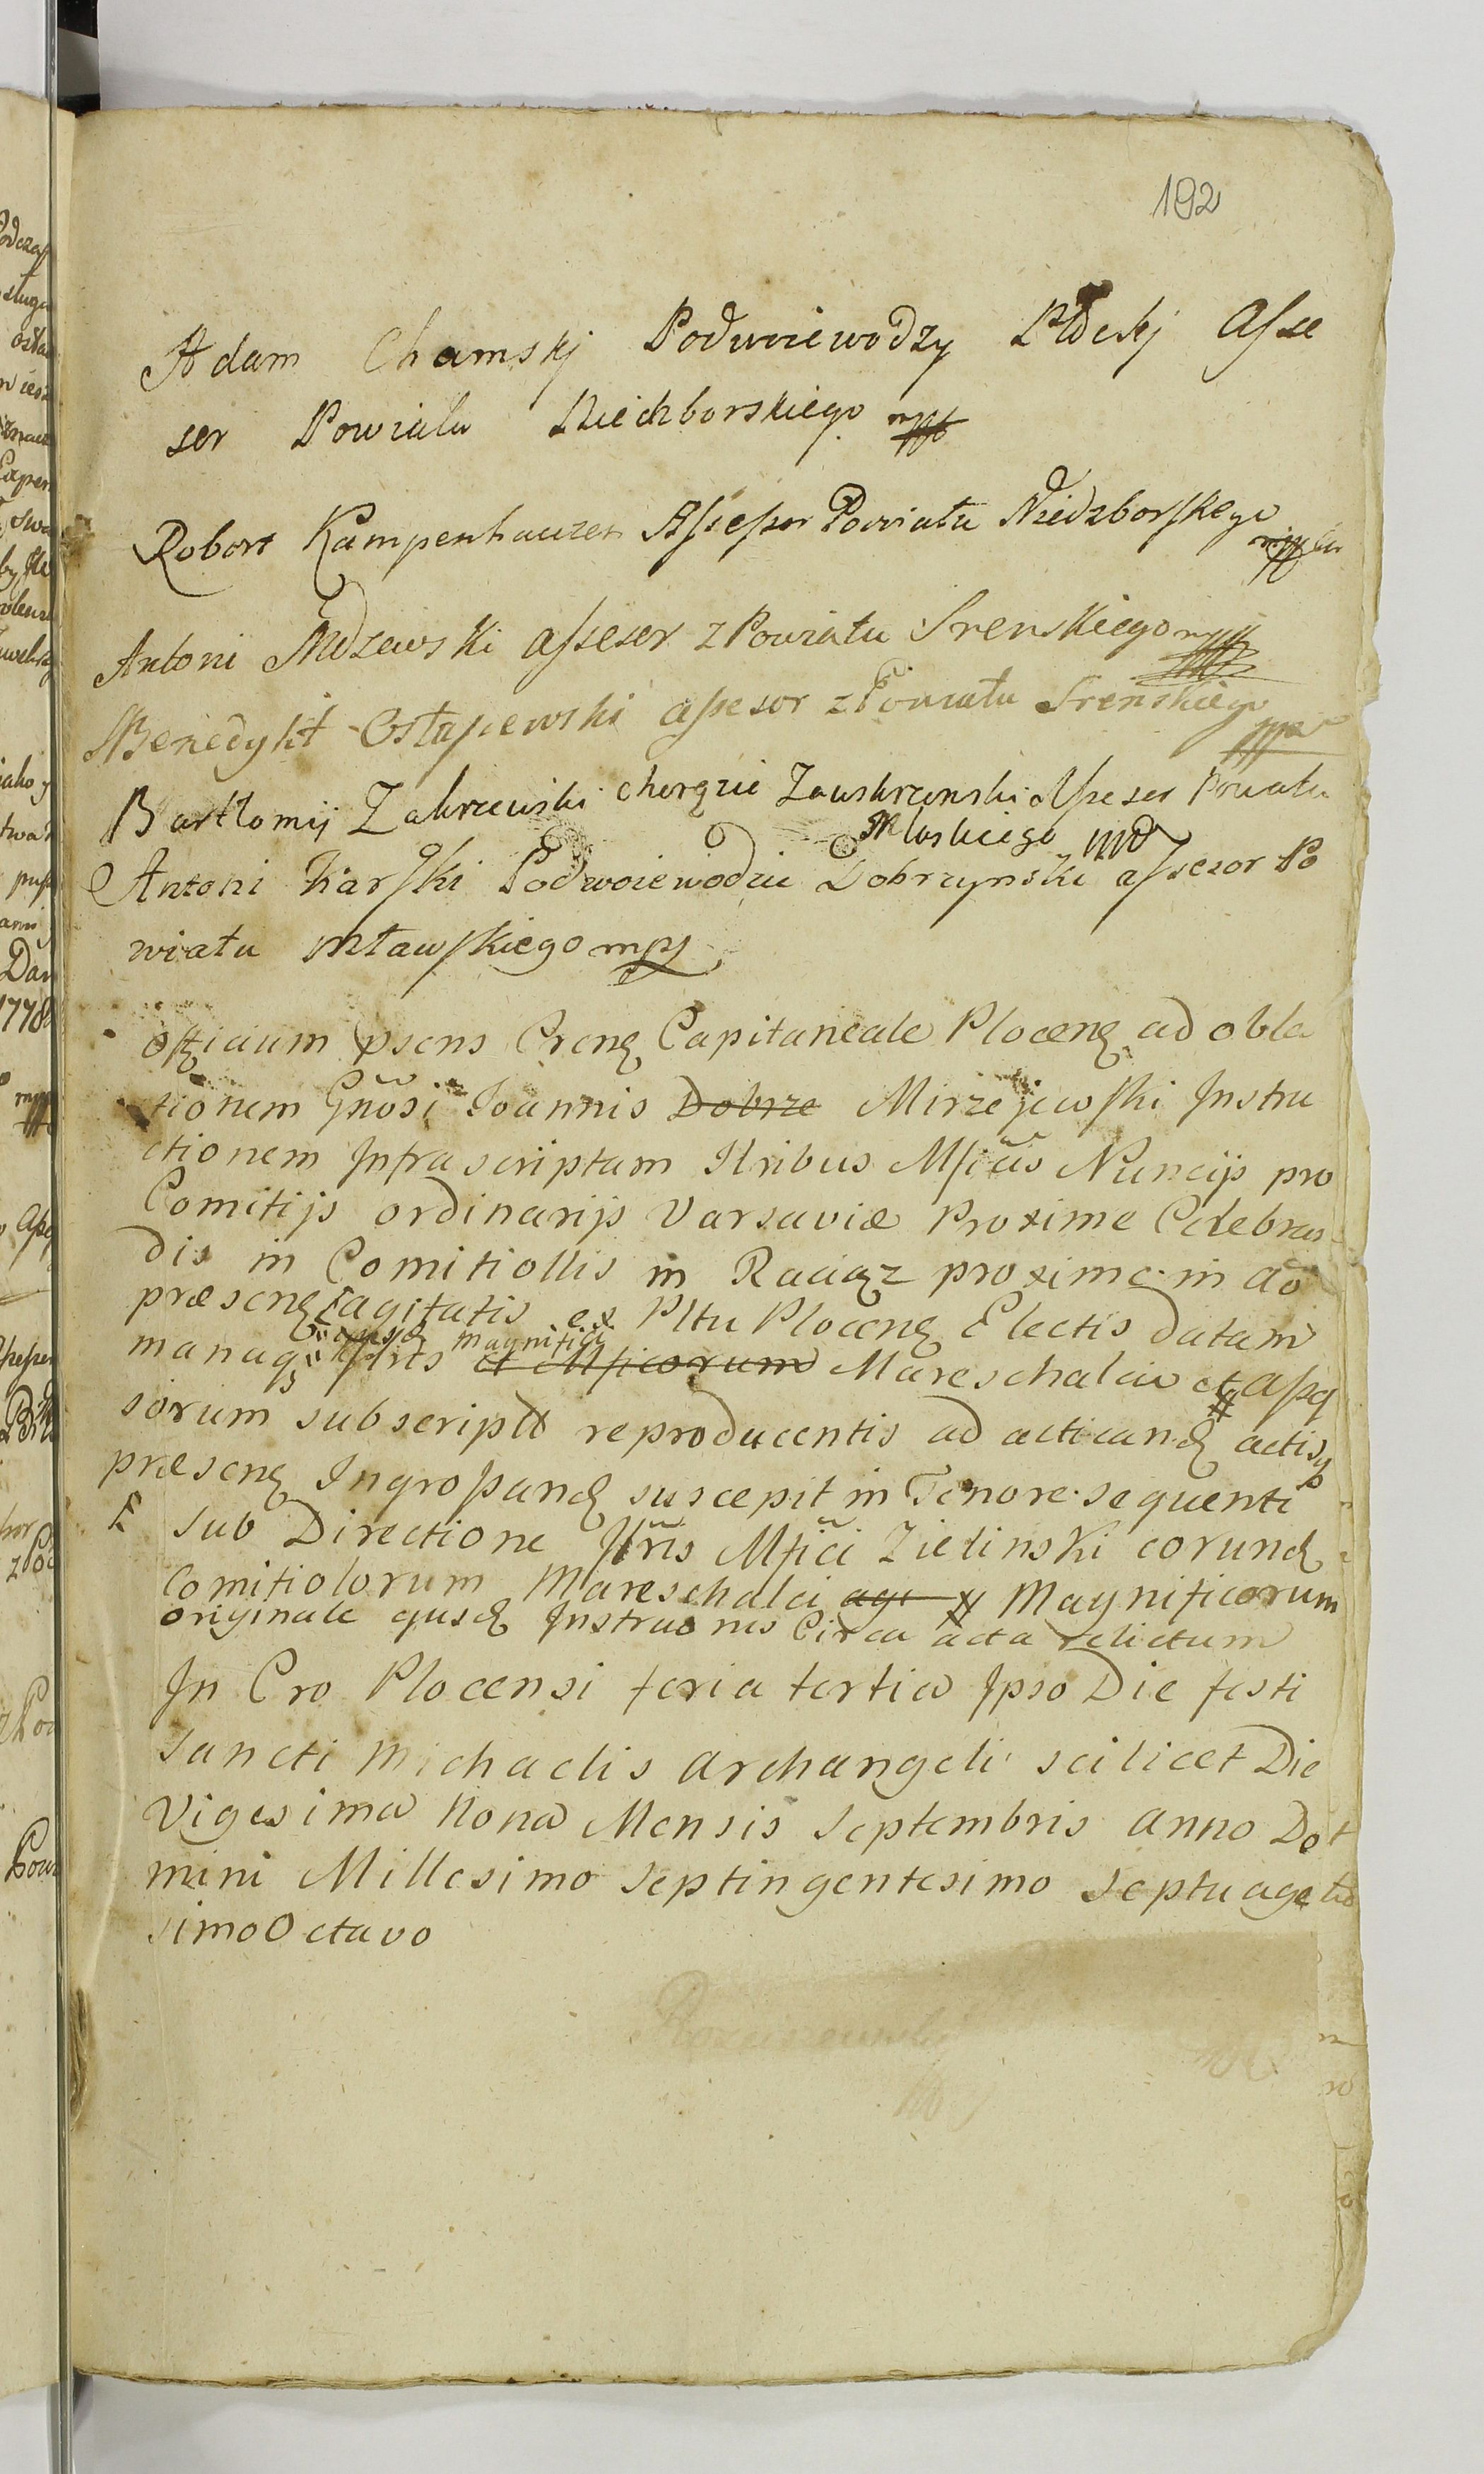 192
Adam Chamskj Podwoiewodzy Płockj Asse
sor Powiatu Niedzborskiego mpp
Robert Kampenhauzen Assessor Powiatu Niedzborskego mpp
Antoni Mdzewski assesor z Powiatu Srenskiego mpp
Benedykt Ostaszewski assesor z Powiatu Srenskiego mpp
Bartłomij Zakrzewski chorązie Zawskrzynski Assesor Powiatu
Mławskiego mp
Antoni Karski Podwoiewodzie Dobrzynski assesor Po
wiatu mławskiego mpp
officium psens Crense Capitaneale Plocense ad obla
tionem Gnosi Joannis Dobrze Mirzejewski Instru
ctionem Infrascriptam Illribus Mficis Nuncijs pro
Comitijs ordinarijs Varsaviæ Proxime Celebran
dis in Comitiollis in Raciąz proxime in ao
præsens agitatis ex Pltu Plocens Electis datam
manuq ejusd magnifici et Mficorum Mareschalci et Asses
sorum subscript reproducentis ad acticand actisq
præsens Ingrossand suscepit in Tenore sequenti
sub Directione Illris Mfici Zielinski eorund
Comitiolorum Mareschalci agi Magnificorum
originale ejusd Instruonis Circa acta relictum
In Cro Plocensi feria tertia Ipso Die festi
Sancti Michaelis Archangeli scilicet Die
Vigesima Nona Mensis Septembris Anno Do
mini Millesimo Septingentesimo Septuage
simo Octavo